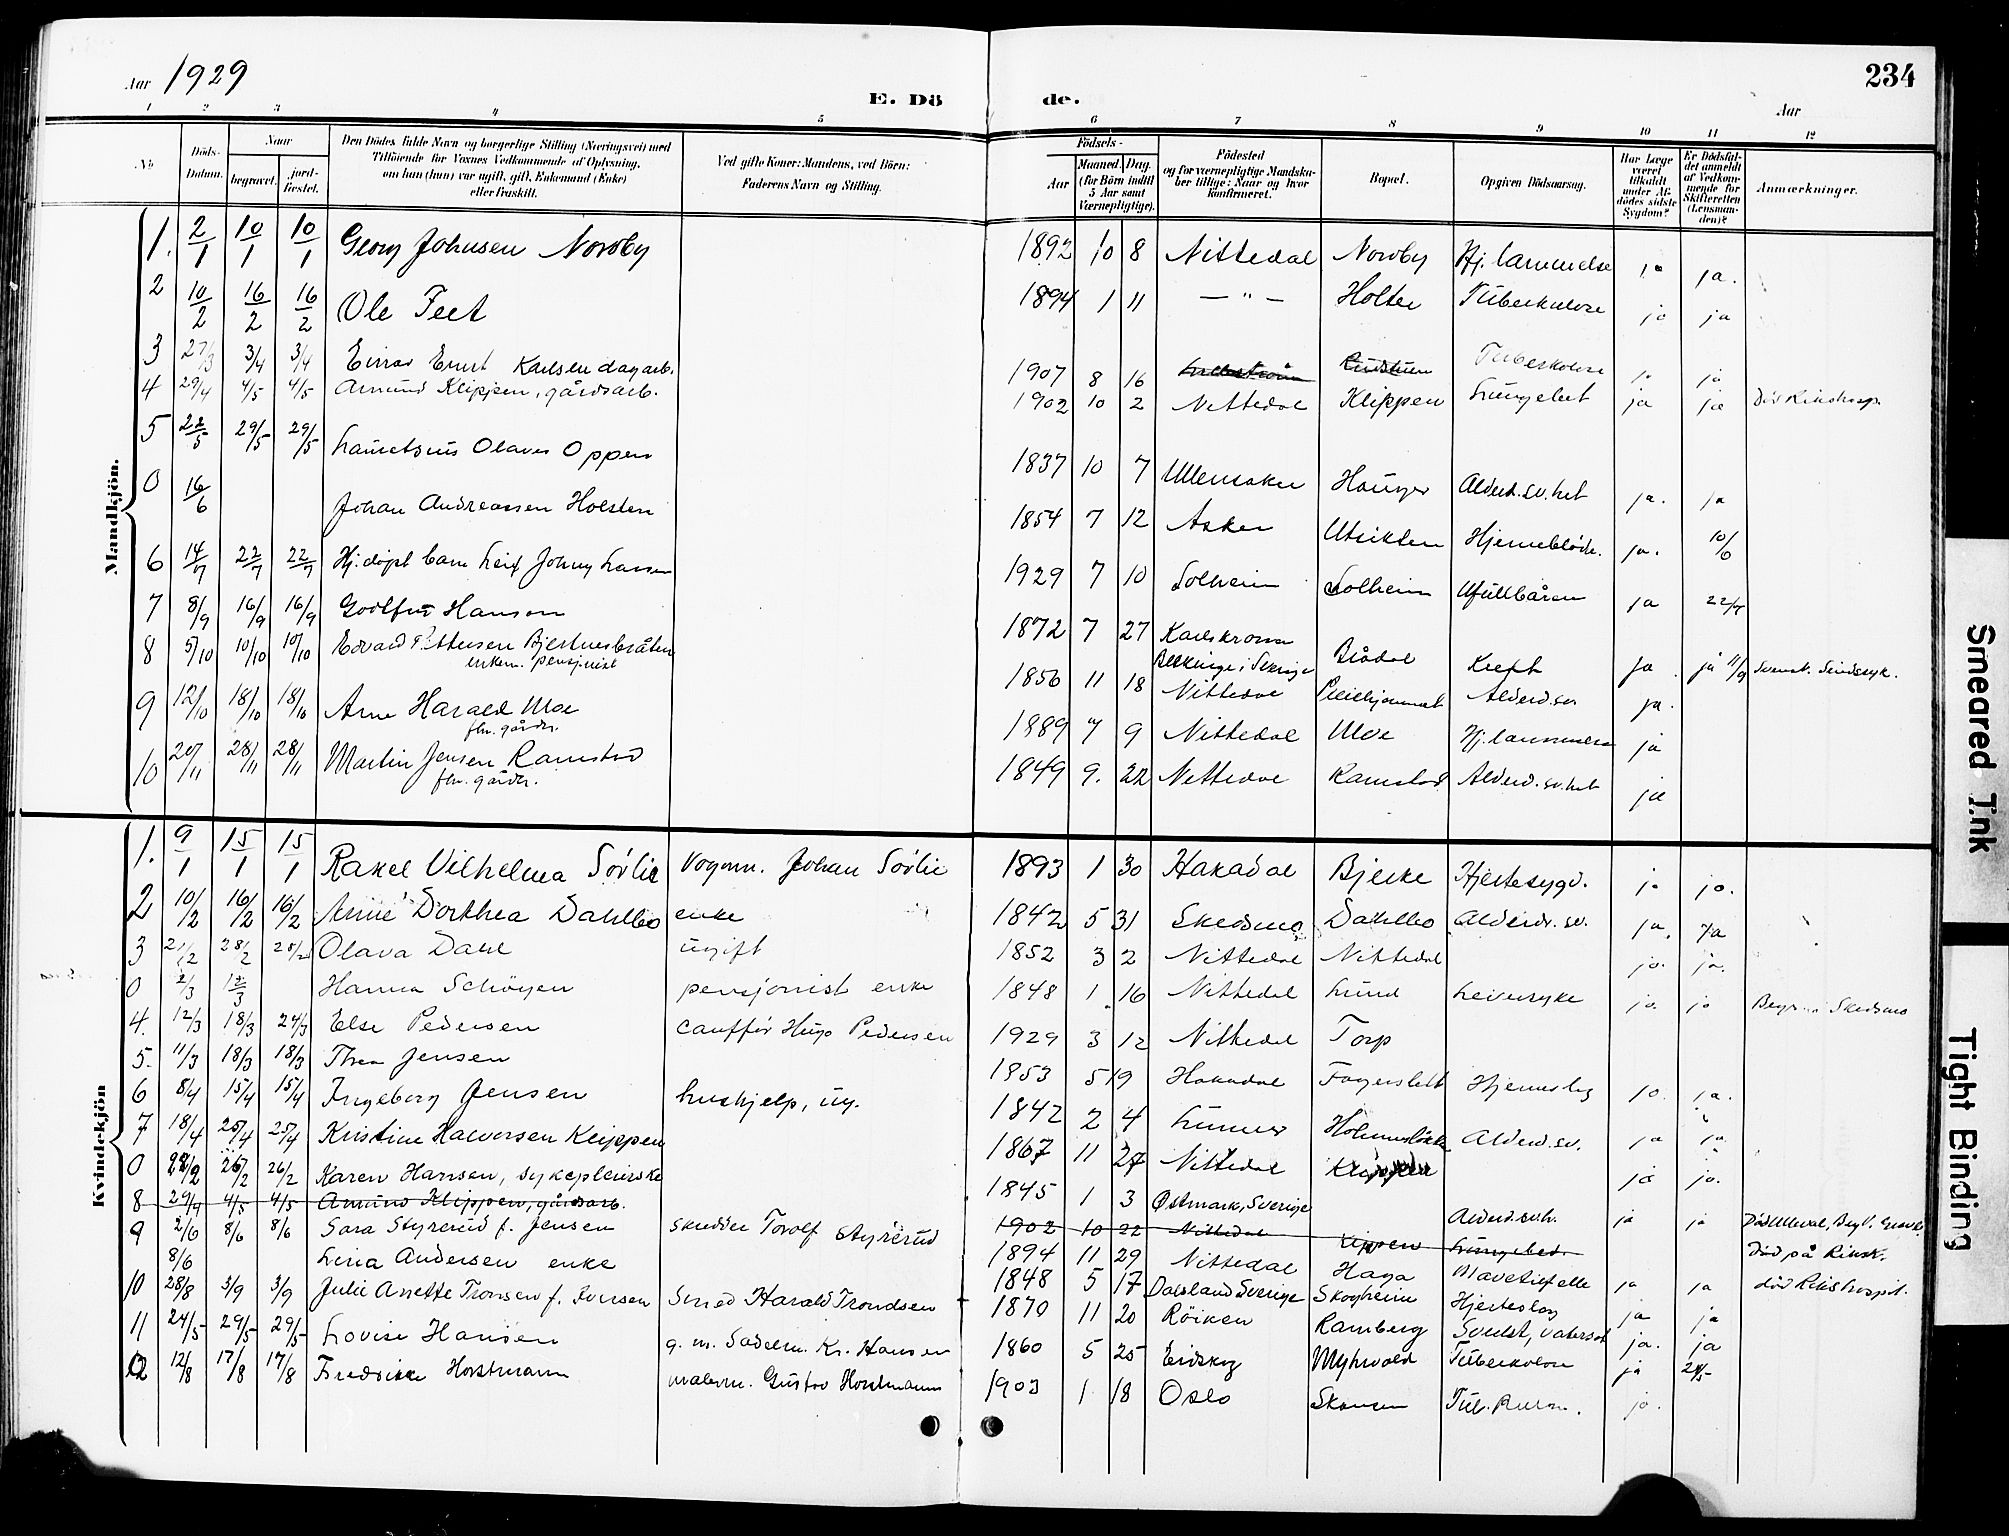 Aar 1929
E. Dö de.
Aar
234
1 2 3 4 5 6 7 8 9 10 11 12
No
Döds-Datum.
Naar
begravet.
jord-festet.
Den Dödes fulde Navn og borgerlige Stilling (Næringsvei) med
Tilföiende for Voxnes Vedkommende af Oplysning,
om han (hun) var ugift, gift, Enkemand (Enke)
eller fraskilt.
Ved gifte Koner: Mandens, ved Börn:
Faderens Navn og Stilling.
Födsels-
Aar
Maaned. Dag.
(for Börn indtil
5 Aar samt
Værnepligtige).
Födested
og for værnepligtige Mandska-
ber tillige: Naar og hvor
konfirmeret.
Bopæl.
Opgiven Dödsaarsag.
Har Læge
været
tilkaldt
under Af-
dödes sidste
Sygdom?
Er Dödsfal-
det anmeldt
af Vedkom-
mende for
Skifteretten
(Lensman-
den)?
Anmærkninger.
Mandkjön.
1. 2/1 10/1 10/1 Georg Johnsen Nordby 1892 10 8 Nittedal Nordby Hj. lammelse ja ja.
2 10/2 16/2 16/2 Ole Feet 1894 1 11 — " — Holter Tuberkulose ja ja
3 27/3 3/4 3/4 Einar Ernst Karlsen dagarb. 1907 8 16 Tuberkulose ja ja
4 29/4 4/5 4/5 Amund Klippen, gårdsarb. 1902 10 2 Nittedal Klippen Lungebet ja ja Död Rikshosp.
5 22/5 29/5 29/5 Olaves Oppen 1837 10 7 Ullensaker Hauger Alderd.sv.het ja. ja
0 16/6 Johan Andreassen Holsten 1854 7 12 Asker Utsikten Hjerneblödn. ja. 10/6
6 14/7 22/7 22/7 Hj. döpt barn Leif Johny Larsen 1929 7 10 Solheim Solheim Ufullbåren ja
7 8/9 16/9 16/9 Godtfred Hanson 1872 7 27 Karlskrona
Blekinge i Sverige Blådal Kreft ja ja 11/9 Svensk. Sindssyk.
8 5/10 10/10 10/10 Edvard Pettersen Bjertnesbråten
enkem. pensjonist 1856 11 18 Nittedal Pleiehjemmet Alderd.sv ja.
9 12/10 18/10 18/10 Arne Harald Moe
fhv. gårdbr. 1889 7 9 Nittedal Moe Hj. lammelse ja
10 20/11 28/11 28/11 Martin Jensen Ramstad
fhv. gårdbr. 1849 9. 22 Nittedal Ramstad Alderd.sv.het ja
Kvindekjön
1. 9/1 15/1 15/1 Rakel Vilhelma Sörlie Vognm. Johan Sörlie 1893 1 30 Hakadal Bjerke Hjertesygd. ja ja.
2 10/2 16/2 16/2 Anne Dorthea Dahlbo enke 1842 5 31 Skedsmo Dahlbo Alderd. sv. ja. ja
3 21/2 28/2 28/2 Olava Dahl ugift 1852 3 2 Nittedal Nittedal ja. ja.
0 2/3 12/3 Hanna Schöyen pensjonist enke 1848 1 16 Nittedal Lund Leversyke ja. ja Begr. i Skedsmo
4. 12/3 18/3 24/3 Else Pedersen caufför Hugo Pedersen 1929 3 12 Nittedal Torp
5. 11/3 18/3 18/3 Thea Jensen 1853 5 19 Hakadal Fagerslett Hjerneslag ja. ja.
6 8/4 15/4 15/4 Ingeborg Jensen hushjelp, ug. 1842 2 4 Lunner Alderd.sv. ja ja
7 18/4 25/4 25/4 Kristine Halvorsen Klippen 1867 11 27 Nittedal Klippen ja ja.
0 26/2 26/2 Karen Hansen, sykepleierske 1845 1 3 Östmark, Sverige Alderd.svh. ja ja Död Ulleval, Beg.
8 29/4 4/5 4/5 Amund Klippen, gårdsarb. 1902 10 22 Nittedal Klippen Lungebet.
9 2/6 8/6 8/6 Sara Styrerud f. Jensen skredder Torolf Styrerud 1894 11 29 Nittedal Haga Mavetilfelle ja ja Död på Riksh.
8/6 Lina Andersen enke 1848 5 17 Dalsland Sverige Skogheim Hjerteslag ja ja död Rikshospit.
10 28/8 3/9 3/9 Julie Anette Tronsen f. Iversen Smed Harald Trondsen 1870 11 20 Röiken Ramberg Svulst, vatersot ja. ja
11 24/5 29/5 29/5 Lovise Hansen g. m. Sadelm. Kr. Hansen 1860 5 25 Eidskog Myhrvold Tuberkulose ja 24/5
12 12/8 17/8 17/8 Fredrikke Horstmann malerm. Gustav Horstmann 1903 1 18 Oslo Skansen ja.
Smeared Ink
Tight Binding